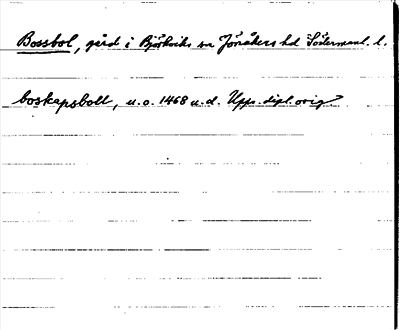 Bossbol, gård i Björkviks sn Jönåkers hd Södermanl. l.
boskapsboll, u.o. 1468 u.d. Upps. dipl. orig.